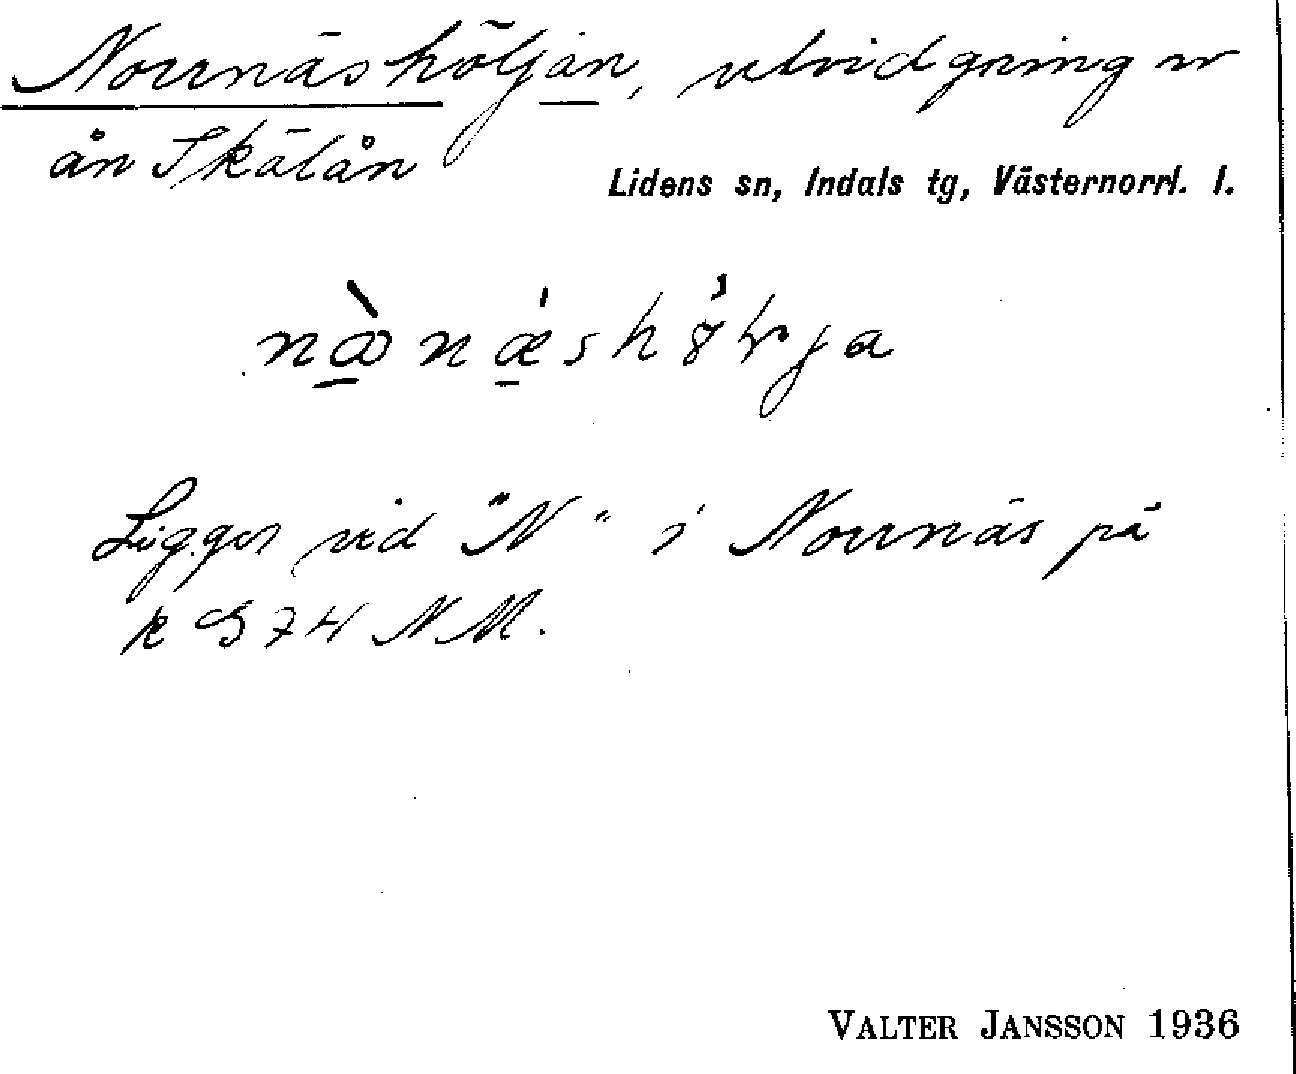 Norrnäshöljan, utvidgning av
ån Skälån
Lidens sn, Indals tg, Västernorrl. l.
Ligger vid "N" i Norrnäs på
k G 74 NM.
VALTER JANSSON 1936